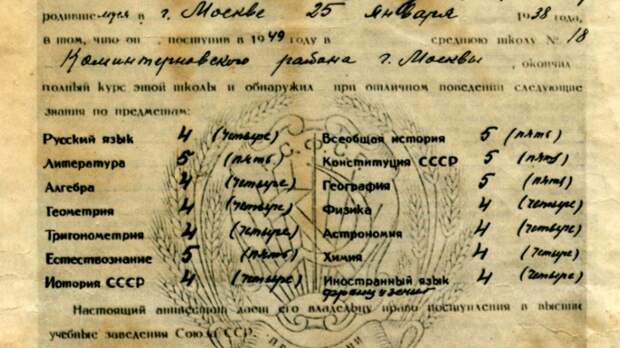 родившемуся в г. Москве 25 января 1938 года,
в том, что он, поступив в 1949 году в среднюю школу № 18
Коминтерновского района г. Москвы, окончил
полный курс этой школы и обнаружил при отличном поведении следующие
знания по предметам:
Русский язык 4 (четыре) Всеобщая история 5 (пять)
Литература 5 (пять) Конституция СССР 5 (пять)
Алгебра 4 (четыре) География 5 (пять)
Геометрия 4 (четыре) Физика 4 (четыре)
Тригонометрия 4 (четыре) Астрономия 4 (четыре)
Естествознание 5 (пять) Химия 4 (четыре)
История СССР 4 (четыре) Иностранный язык 4 (четыре)
французский
Настоящий аттестат дает его владельцу право поступления в высшие
учебные заведения Союза ССР.